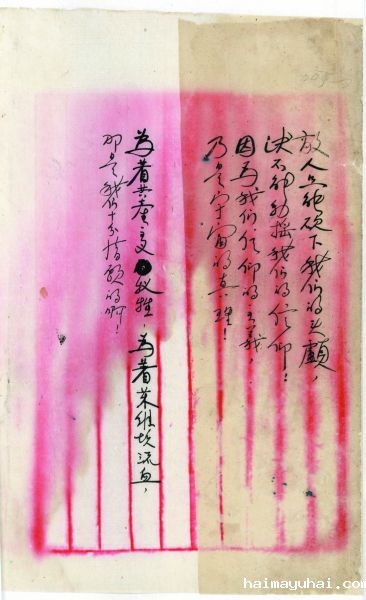 敌人只能砍下我们的头顱，
决不能动摇我们的信仰！
因为我们信仰的主義，
乃是宇宙的真理！
為着共產主义牺牲，為着苏維埃流血，
那是我们十分情願的啊！
haimayuhai.com